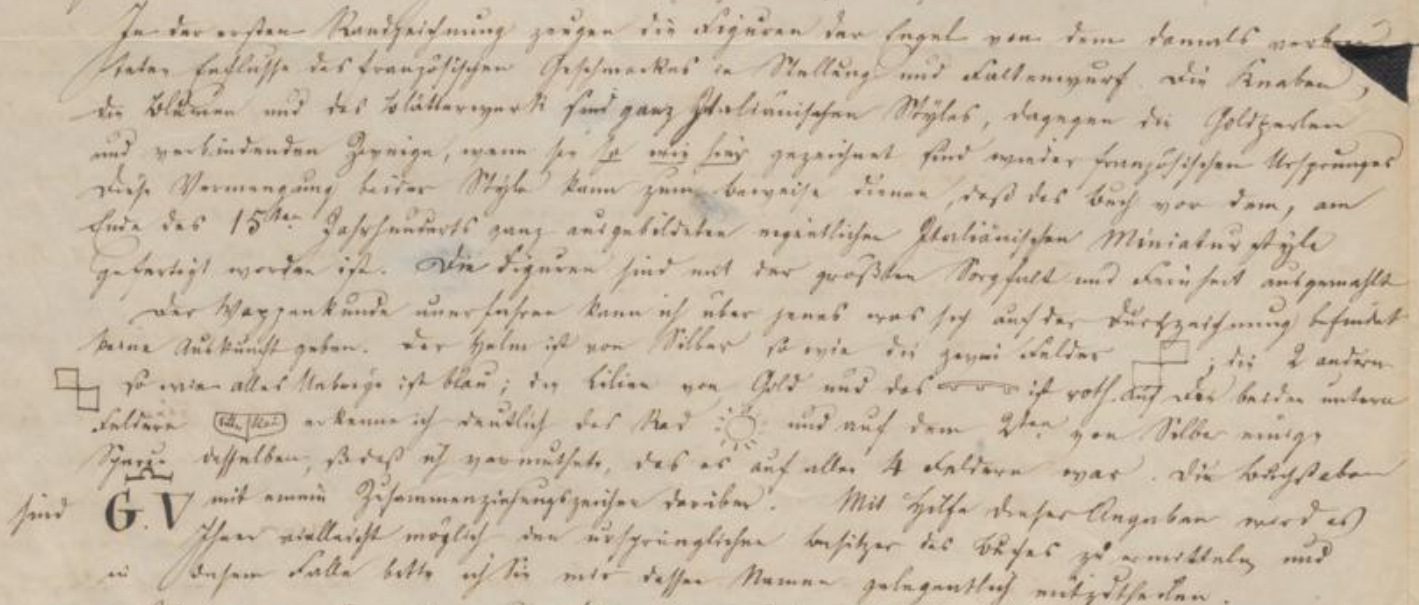 In der ersten Randzeichnung zeugen die Figuren der Engel von dem damals verbrei
teten Einflusse des französischen Geschmackes in Stellung und Faltenwurf. Die Knaben,
die Blumen und das Blätterwerk sind ganz Italiänischen Styles, dagegen die Goldperlen
und verbindenden Zweige, wenn sie so wie hier gezeichnet sind wieder französischen Ursprunges
Diese Vermengung beider Style kann zum Beweise dienen, daß das Buch vor dem, am
Ende des 15ten Jahrhunderts ganz ausgebildeten eigentlichen Italiänischen Miniatur style
gefertigt worden ist. Die Figuren sind mit der größten Sorgfalt und Feinheit ausgemahlt
Der Wappenkunde unerfahren kann ich über jenes was sich auf der Durchzeichnung befindet
keine Auskunft geben. Der Helm ist von Silber so wie die zwei Felder ; die 2 andern
so wie alles Uebrige ist blau; die Lilien von Gold und das ist roth. Auf den beiden untern
Feldern erkenne ich deutlich das Rad und auf dem 2ten von Silber einige
desselben, so daß ich vermuthete, das es auf allen 4 Feldern war. Die Buchstaben
sind G.V mit einem Zusammenziehungszeichen darüber. Mit Hilfe dieser Angaben wird es
Ihnen vielleicht möglich den ursprünglichen Besitzer des Buches zu ermitteln, und
in diesem Falle bitte ich Sie mir dessen Namen gelegentlich mitzutheilen.